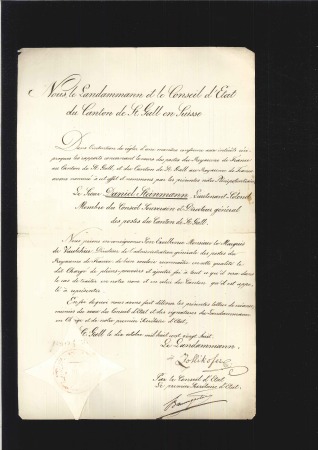 Nous le Landammann et le Conseil d'Etat
du Canton de St Gall en Suisse
Dans l'intention de régler d'une manière conforme aux intérêts réci-
proques les rapports concernant le cours des postes du Royaume de France
au Canton de St Gall, et du Canton de St Gall au Royaume de France
avons nommé à cet effet et nommons par les présentes notre
Le Sieur Daniel Steinmann, Lieutenant Colonel,
Membre du Conseil Souverain et Directeur général
des postes du Canton de St Gall.
Nous prions en conséquence Son Excellence Monsieur le Marquis
de Vaulchier, Directeur de l'administration générale des postes du
Royaume de France, de bien vouloir reconnaître en cette qualité le
dit Chargé de pleins-pouvoirs et ajouter foi à tout ce qu'il sera dans
le cas de traiter en notre nom et au nom du Canton qu'il est appelé
à représenter.
En foi de quoi nous avons fait délivrer les présentes lettres
munies du sceau du Conseil d'Etat et des signatures du Landammann
en Charge et de notre premier Secrétaire d'Etat.
St Gall le dix octobre mil huit cent vingt huit.
Le Landammann,
Zollikofer
Par le Conseil d'Etat
Le premier Secrétaire d'Etat,